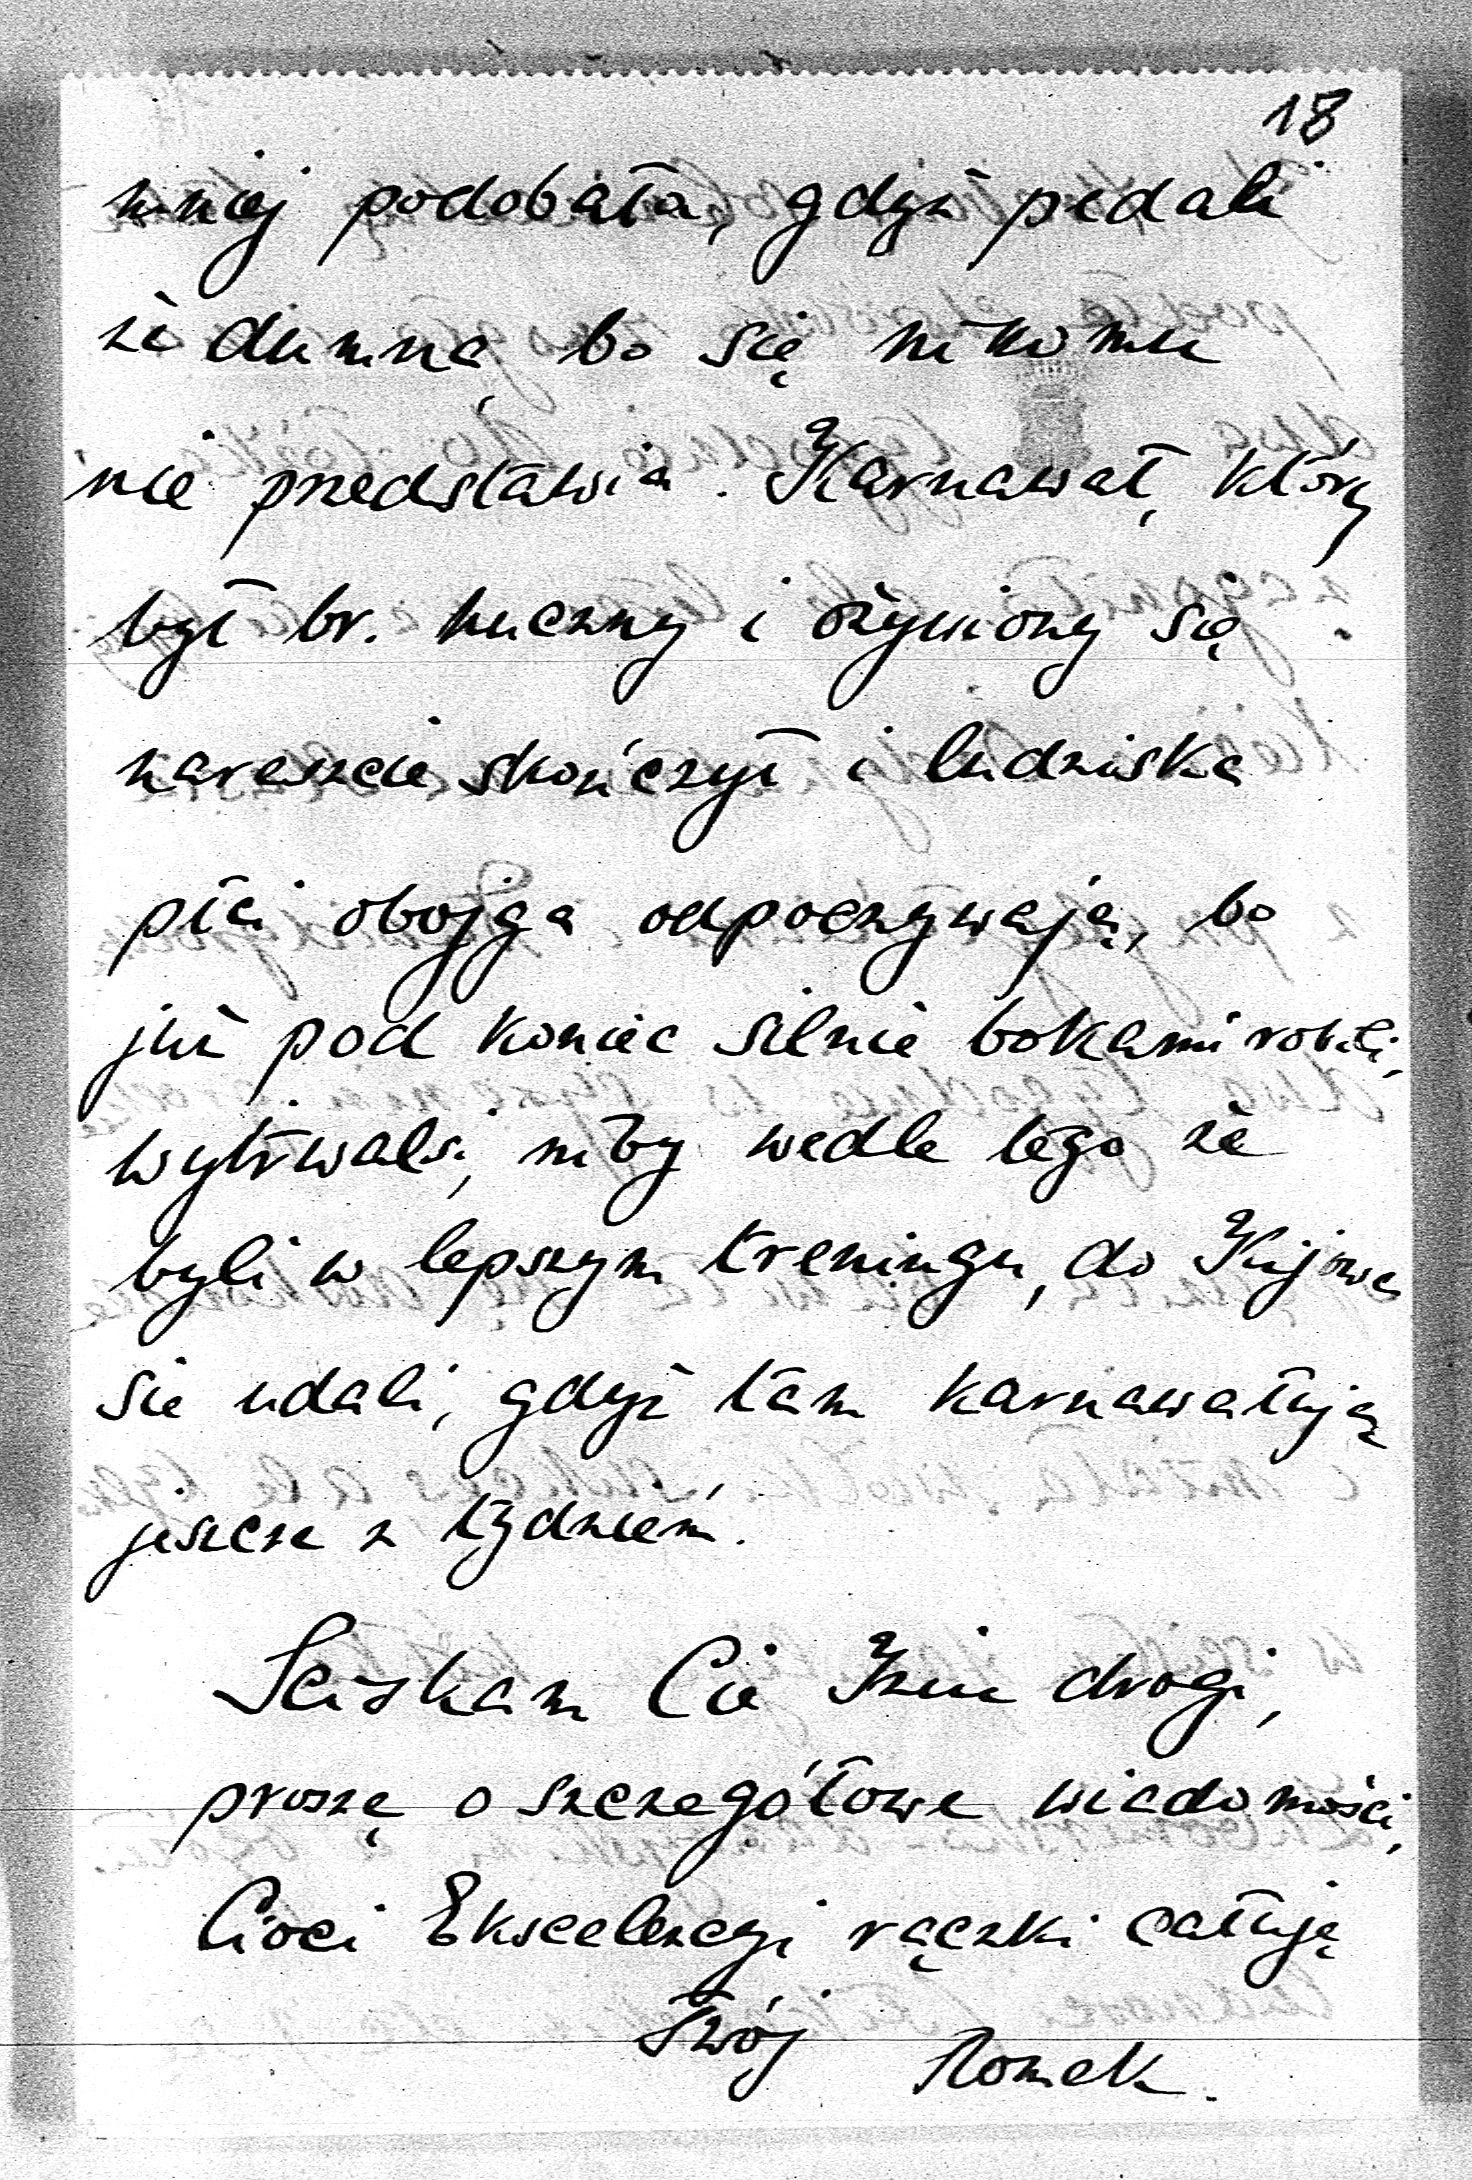 18
mniej podobała, gdyż pedali
że dumną bo się nikomu
nie przedstawia. Karnawał, który
był br. huczny i ożywiony się
nareszcie skończył i ludziska
płci obojga odpoczywają, bo
już pod koniec silnie bokami robili,
wytrwalsi, niby wedle tego że
byli w lepszym treningu, do Kijowa
sie udali, gdyż tam karnawałują
jeszcze z tydzień.
Sciskam Cie Iziu drogi,
proszę o szczegółowe wiadomości,
Cioci Ekscelencyi rączki całuję
Twój
Romek.